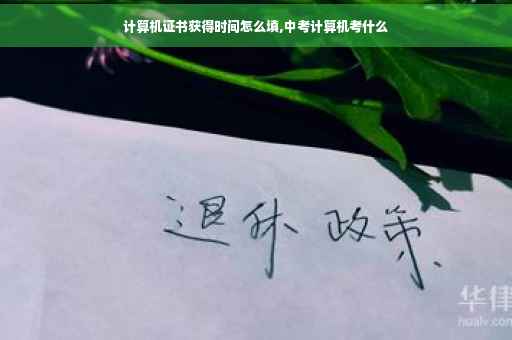 计算机证书获得时间怎么填,中考计算机考什么
退休 政策
华律
hualv.com